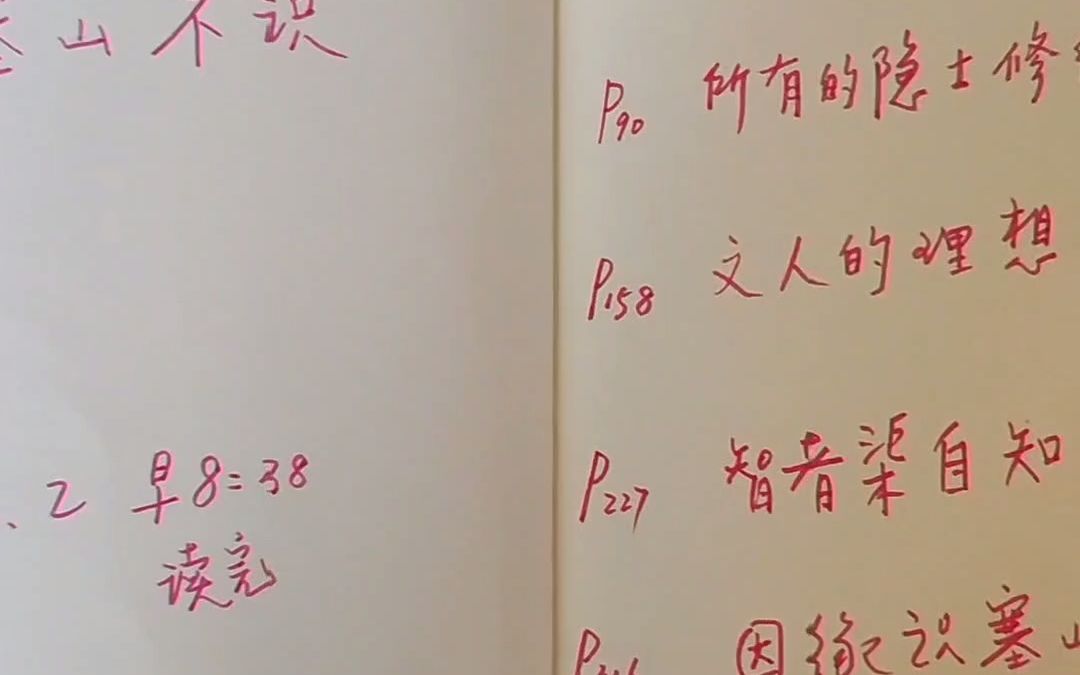 山不识
.2 早8:38
读完
P90 所有的隐士修
P158 文人的理想
P227 智者渠自知
因缘识塞山